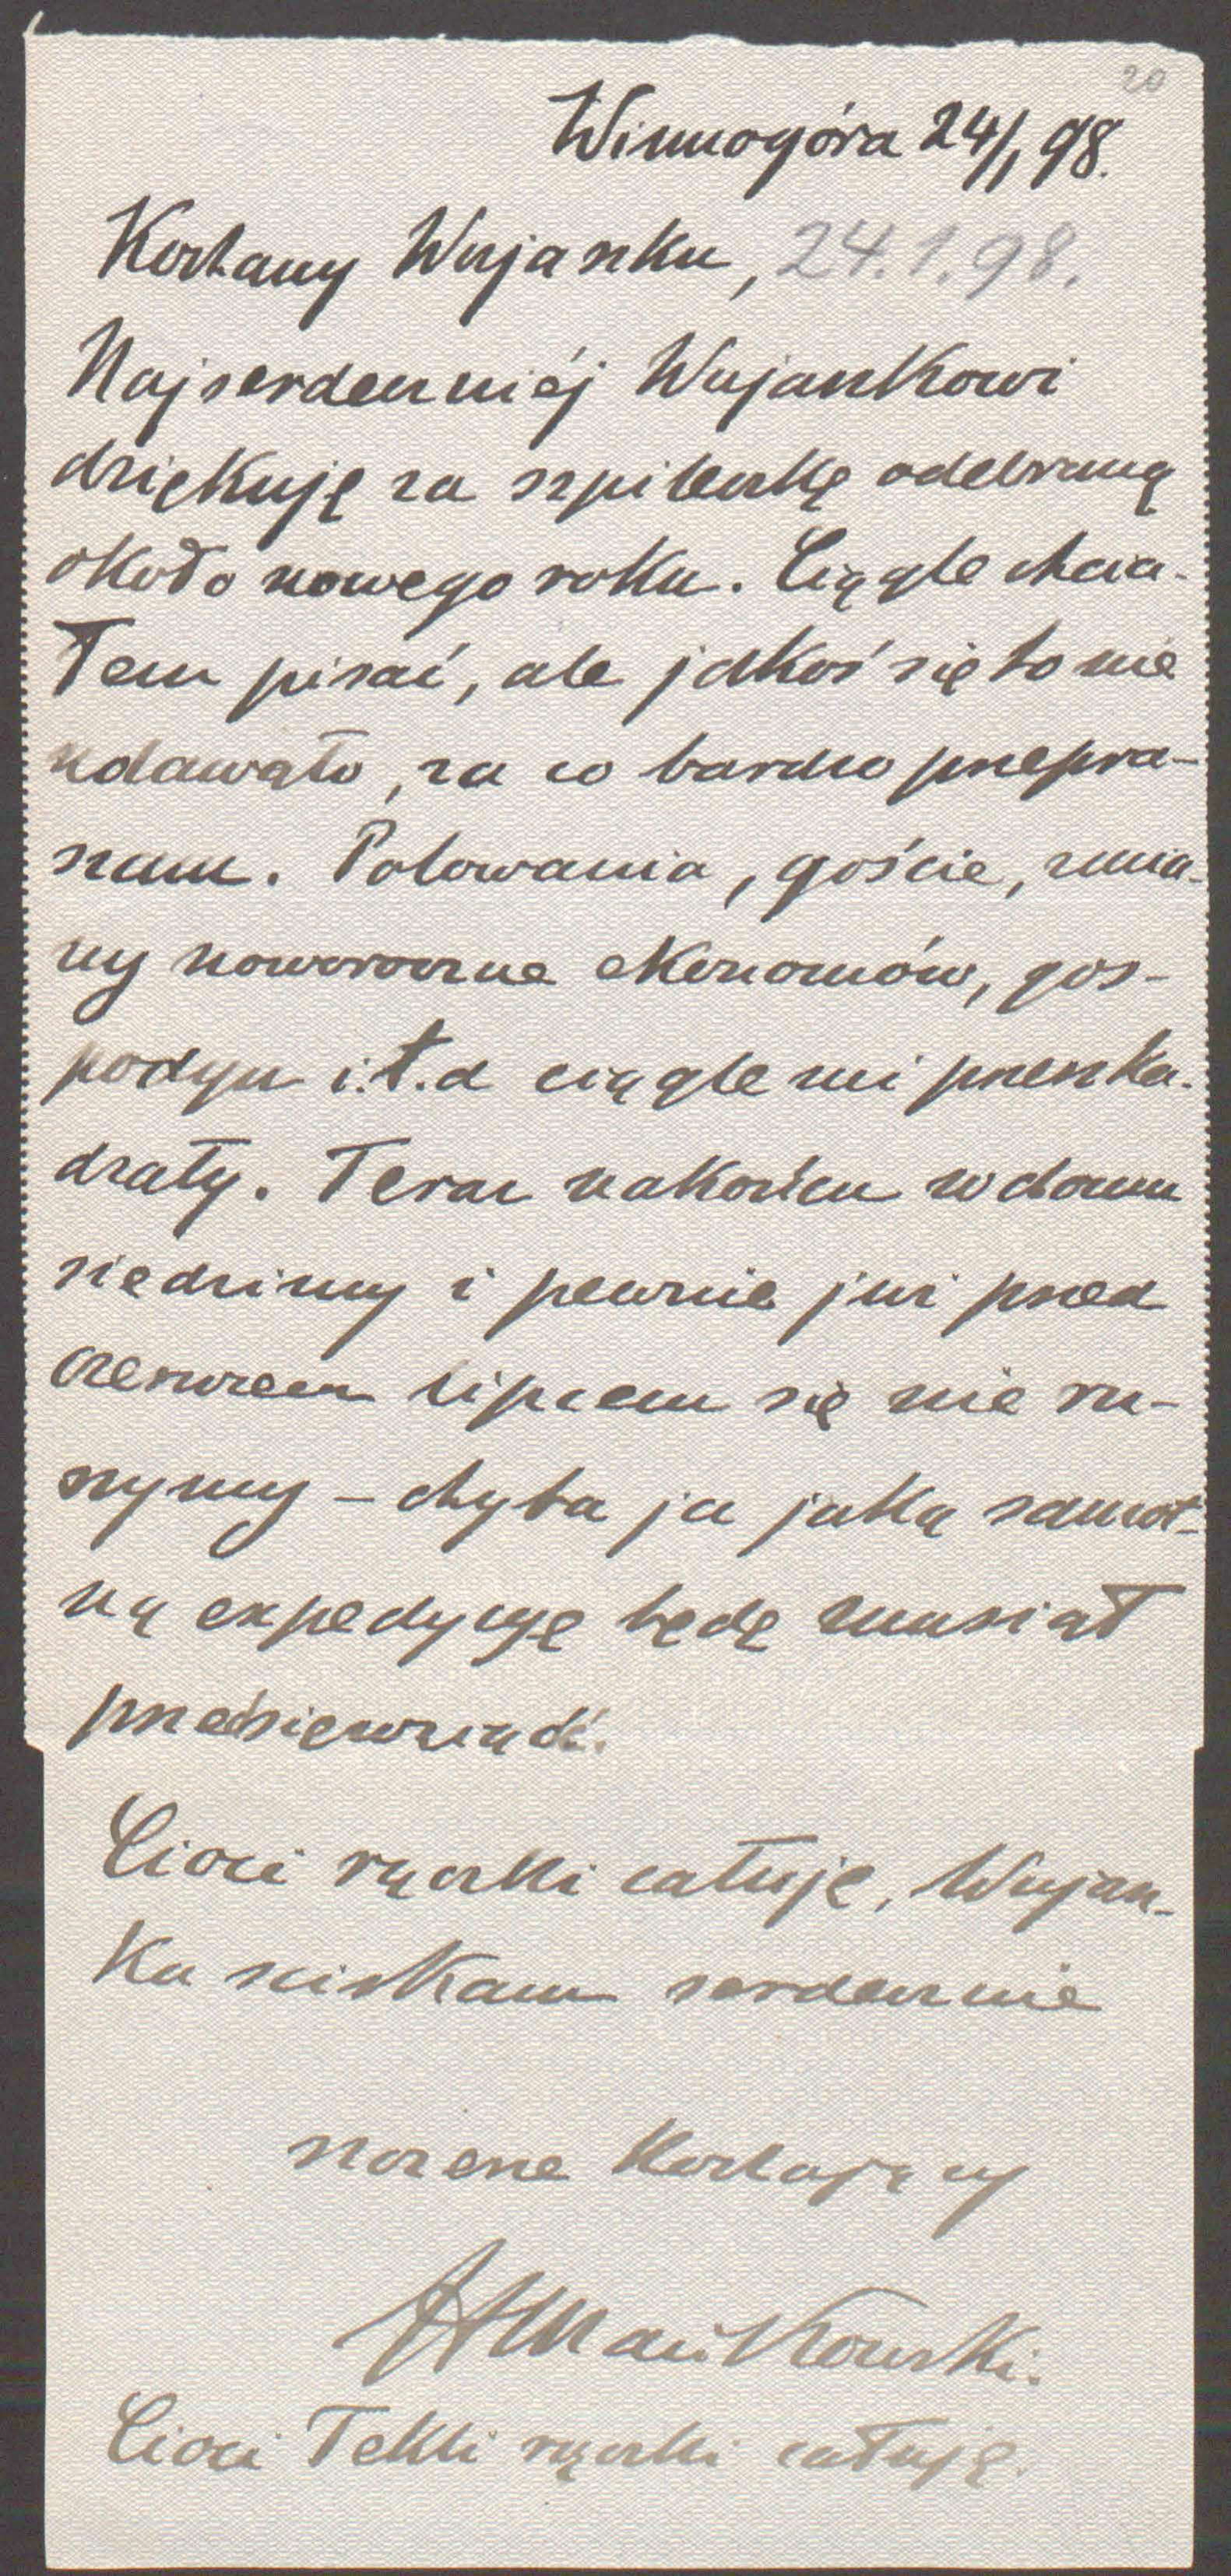 20
Winnogóra 24/1 98.
Kochany Wujanku, 24.1.98.
Najserdeczniéj Wujankowi
dziękuję za szpileczkę odebraną
około nowego roku. Ciągle chcia-
łem pisać, ale jakoś się to nie
udawało, za co bardzo przepra-
szam. Polowania, goście, zmia-
ny noworoczne ekonomów, gos-
podyń i.t.d ciągle mi przeszka-
dzały. Teraz nakońcu w domu
siedzimy i pewnie już przed
czerwcem lipcem się nie ru-
szymy – chyba ja jaką samot-
ną expedycyę będę musiał
przedsięwziąść.
Cioci rączki całuję, Wujan-
ka sciskam serdecznie
szczerze kochający
Mańkowski.
Cioci Tekli rączki całuję.